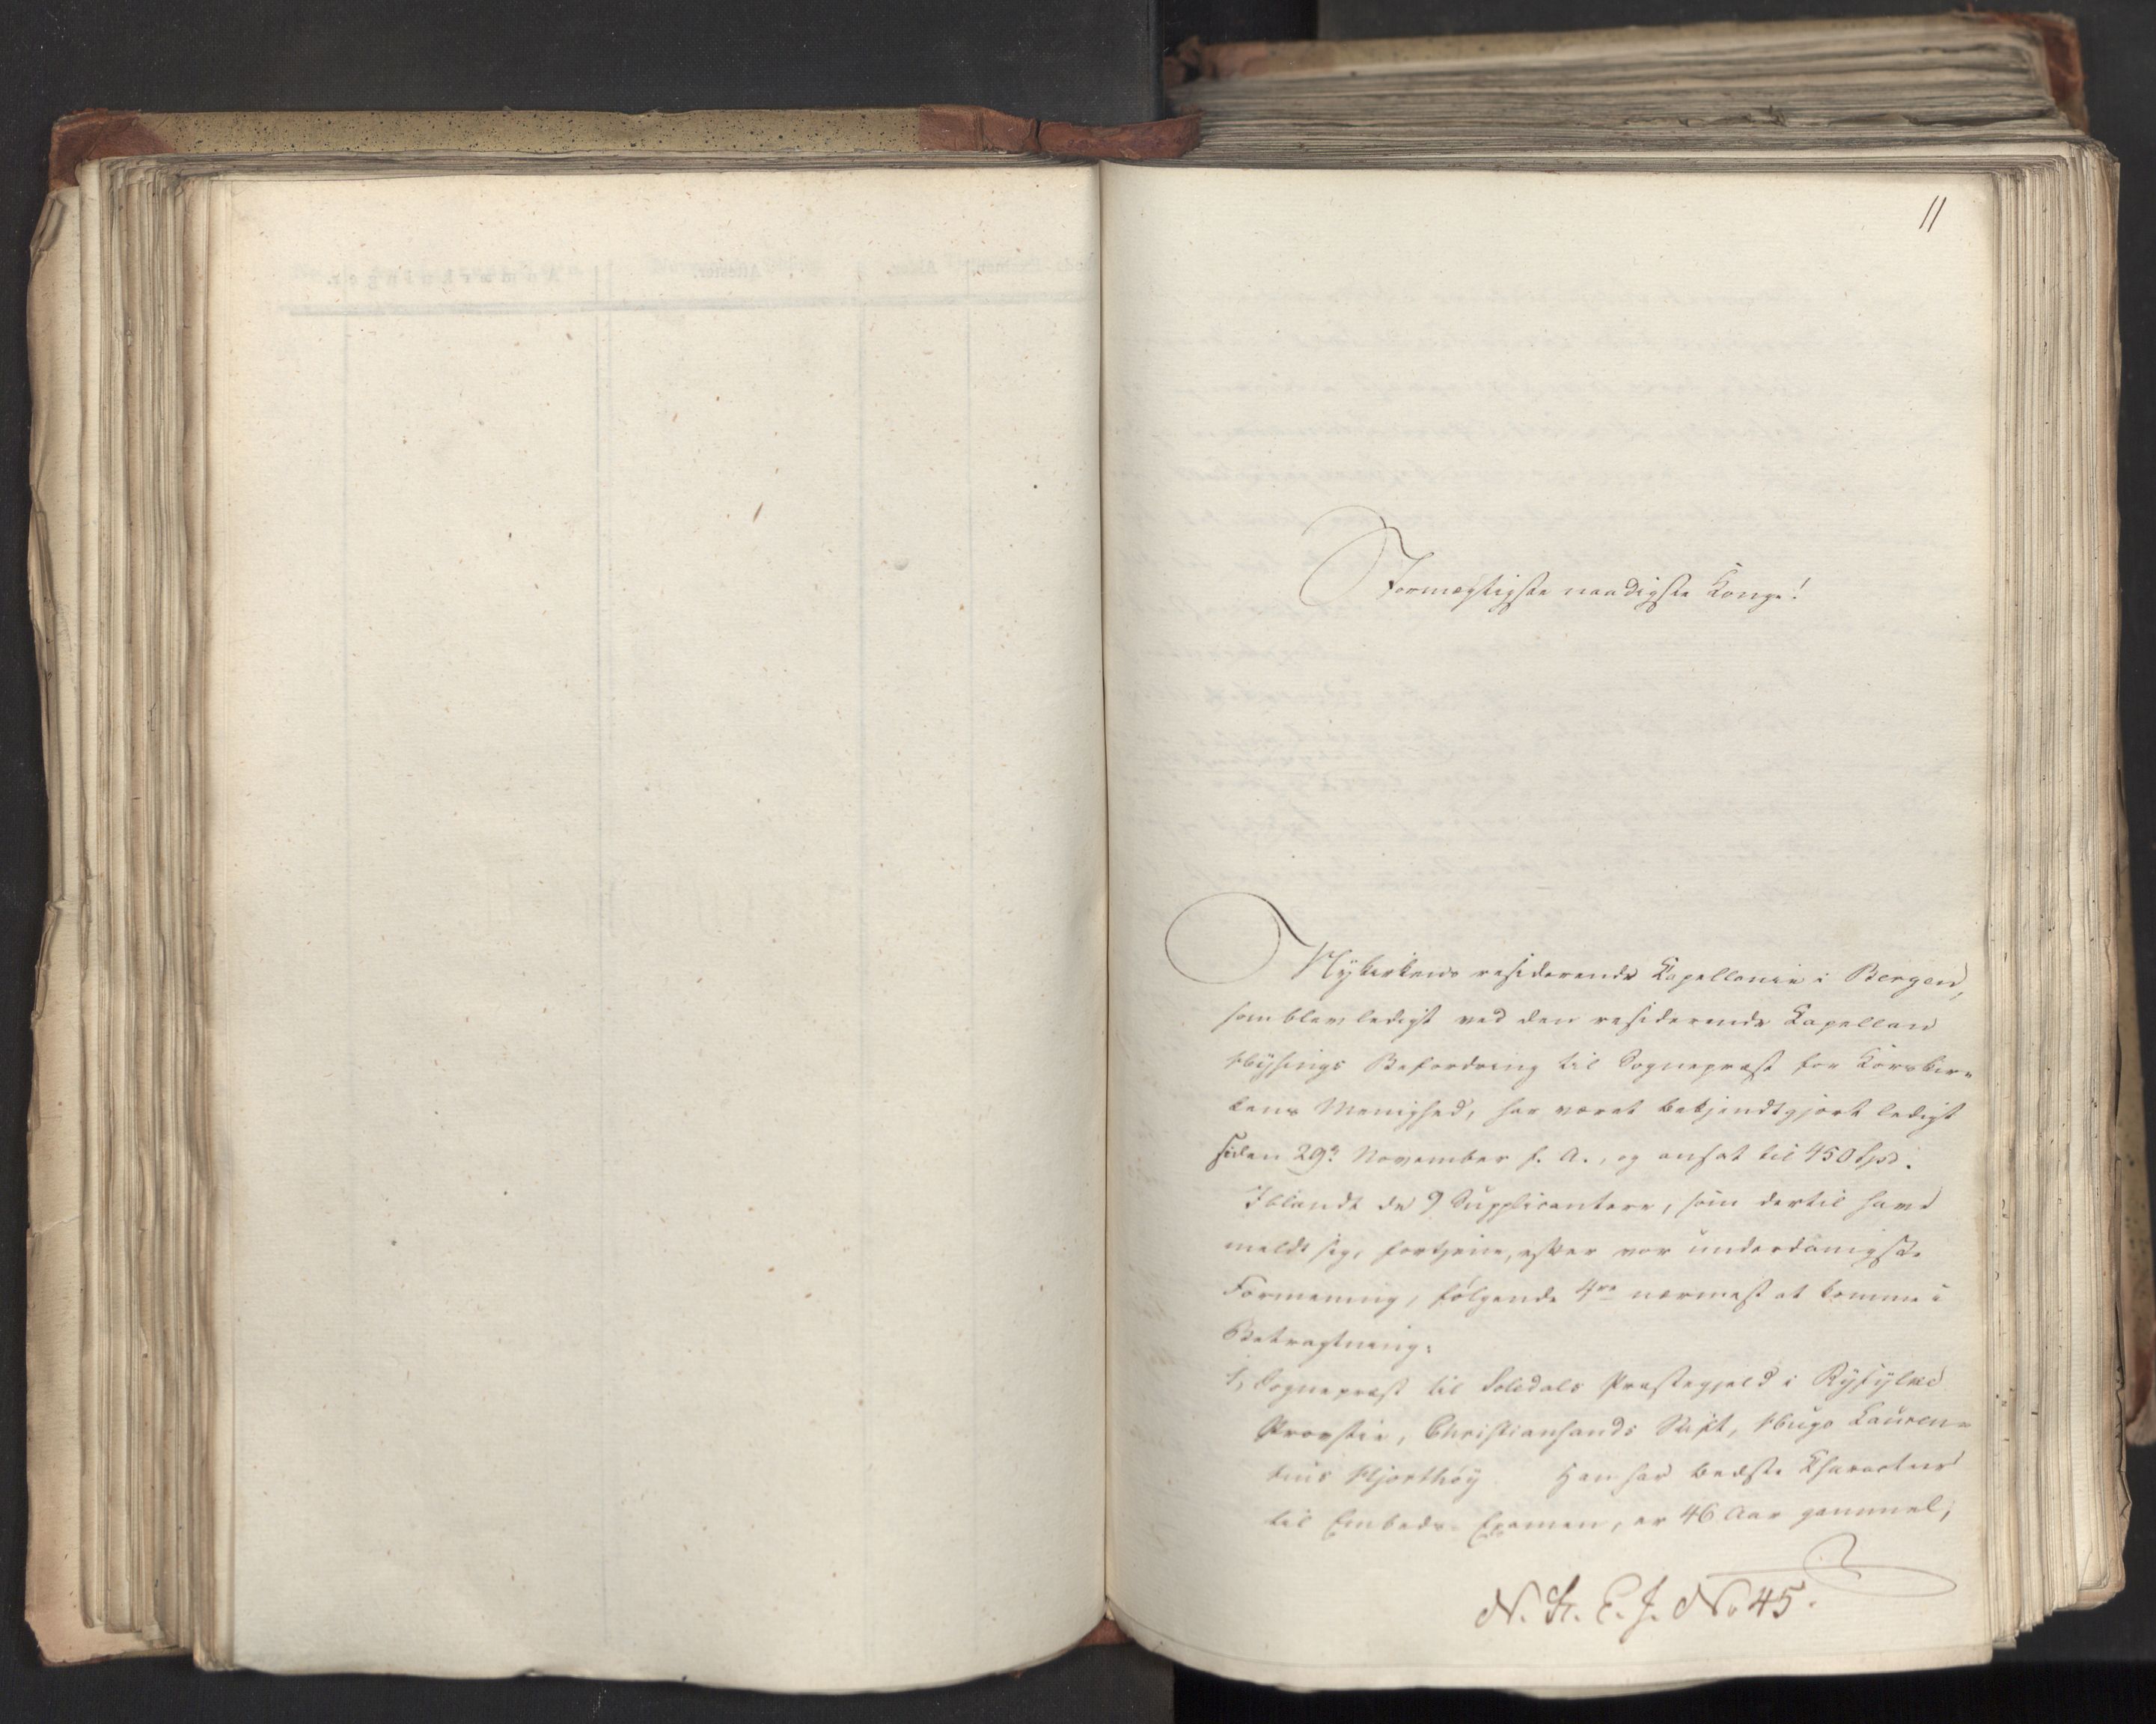 11
Stormægtigste naadigste Konge!
Nykirkens residerende Kapellanie i Bergen,
som blev ledigt ved den residerende Kapellan
Hysings Befordring til Sognepræst for Korskir-
kens Menighed, har været bekjendtgjort ledigt
siden 29de November f. A., og ansat til 450 Spd.
Iblandt de 9 Supplicantere, som dertil have
meldt sig, fortjene, efter vor underdanigste
Formening, følgende 4re nærmest at komme i
Betragtning:
1, Sognepræst til Soledals Præstegjeld i Ryfylke
Provstie, Christiansands Stift, Hugo Lauren-
tius Hjorthøy. Han har bedste Character
til Embeds-Examen, er 46 Aar gammel,
N. St. E. J. No 45.